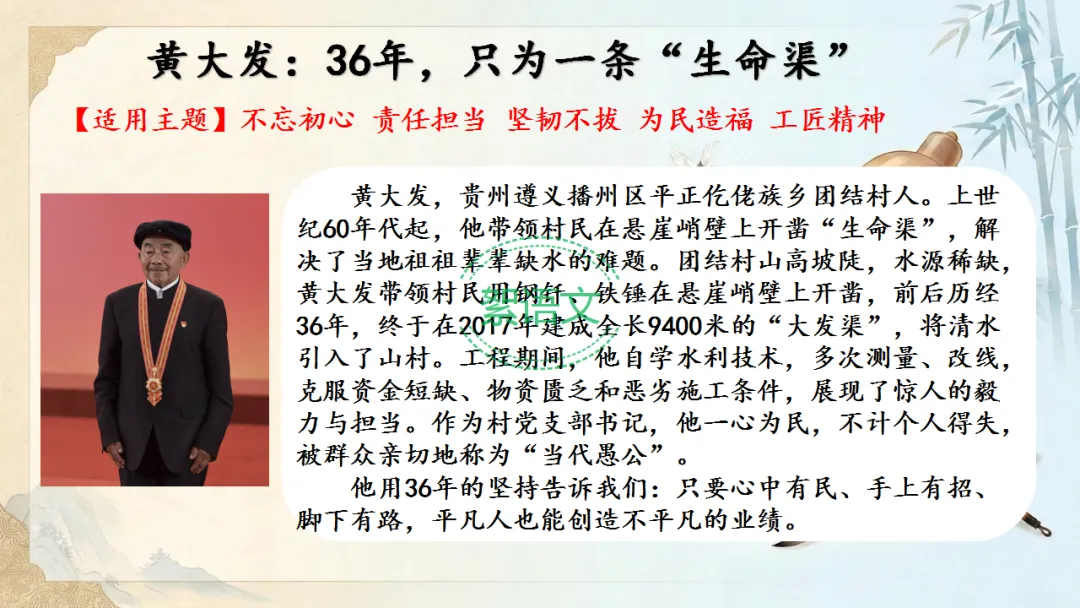 黄大发：36年，只为一条“生命渠”
【适用主题】不忘初心 责任担当 坚韧不拔 为民造福 工匠精神
黄大发，贵州遵义播州区平正仡佬族乡团结村人。上世
纪60年代起，他带领村民在悬崖峭壁上开凿“生命渠”，解
决了当地祖祖辈辈缺水的难题。团结村山高坡陡，水源稀缺，
黄大发带领村民用钢钎、铁锤在悬崖峭壁上开凿，前后历经
36年，终于在2017年建成全长9400米的“大发渠”，将清水
引入了山村。工程期间，他自学水利技术，多次测量、改线，
克服资金短缺、物资匮乏和恶劣施工条件，展现了惊人的毅
力与担当。作为村党支部书记，他一心为民，不计个人得失，
被群众亲切地称为“当代愚公”。
他用36年的坚持告诉我们：只要心中有民、手上有招、
脚下有路，平凡人也能创造不平凡的业绩。
絮语文